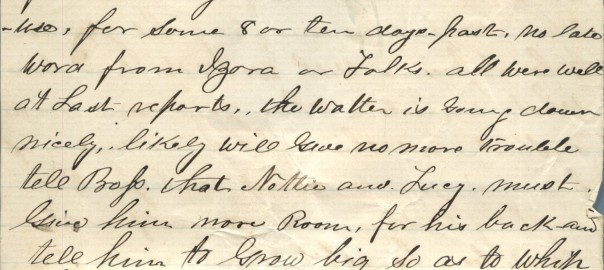 -use, for some 8 or ten days-past, no late
word from Izora or Folks. all were well
at Last reports,. the Watter is Going down
nicely,. likely will Give no more trouble
tell Boss. that Nettie and. Lucy. must.
Give him more Room, for his back-and
tell him to Grow big so as to whip